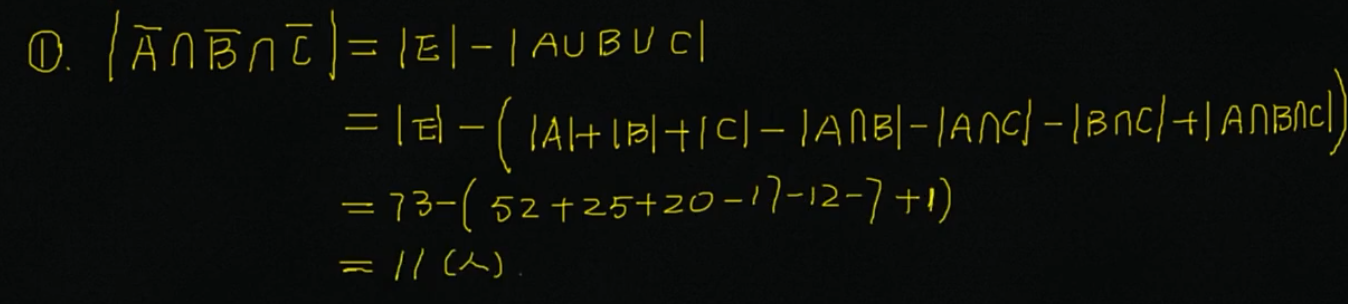 ①. |A̅∩B̅∩C̅|=|E|-|A∪B∪C|
=|E|-(|A|+|B|+|C|-|A∩B|-|A∩C|-|B∩C|+|A∩B∩C|)
=73-(52+25+20-17-12-7+1)
=11(人).